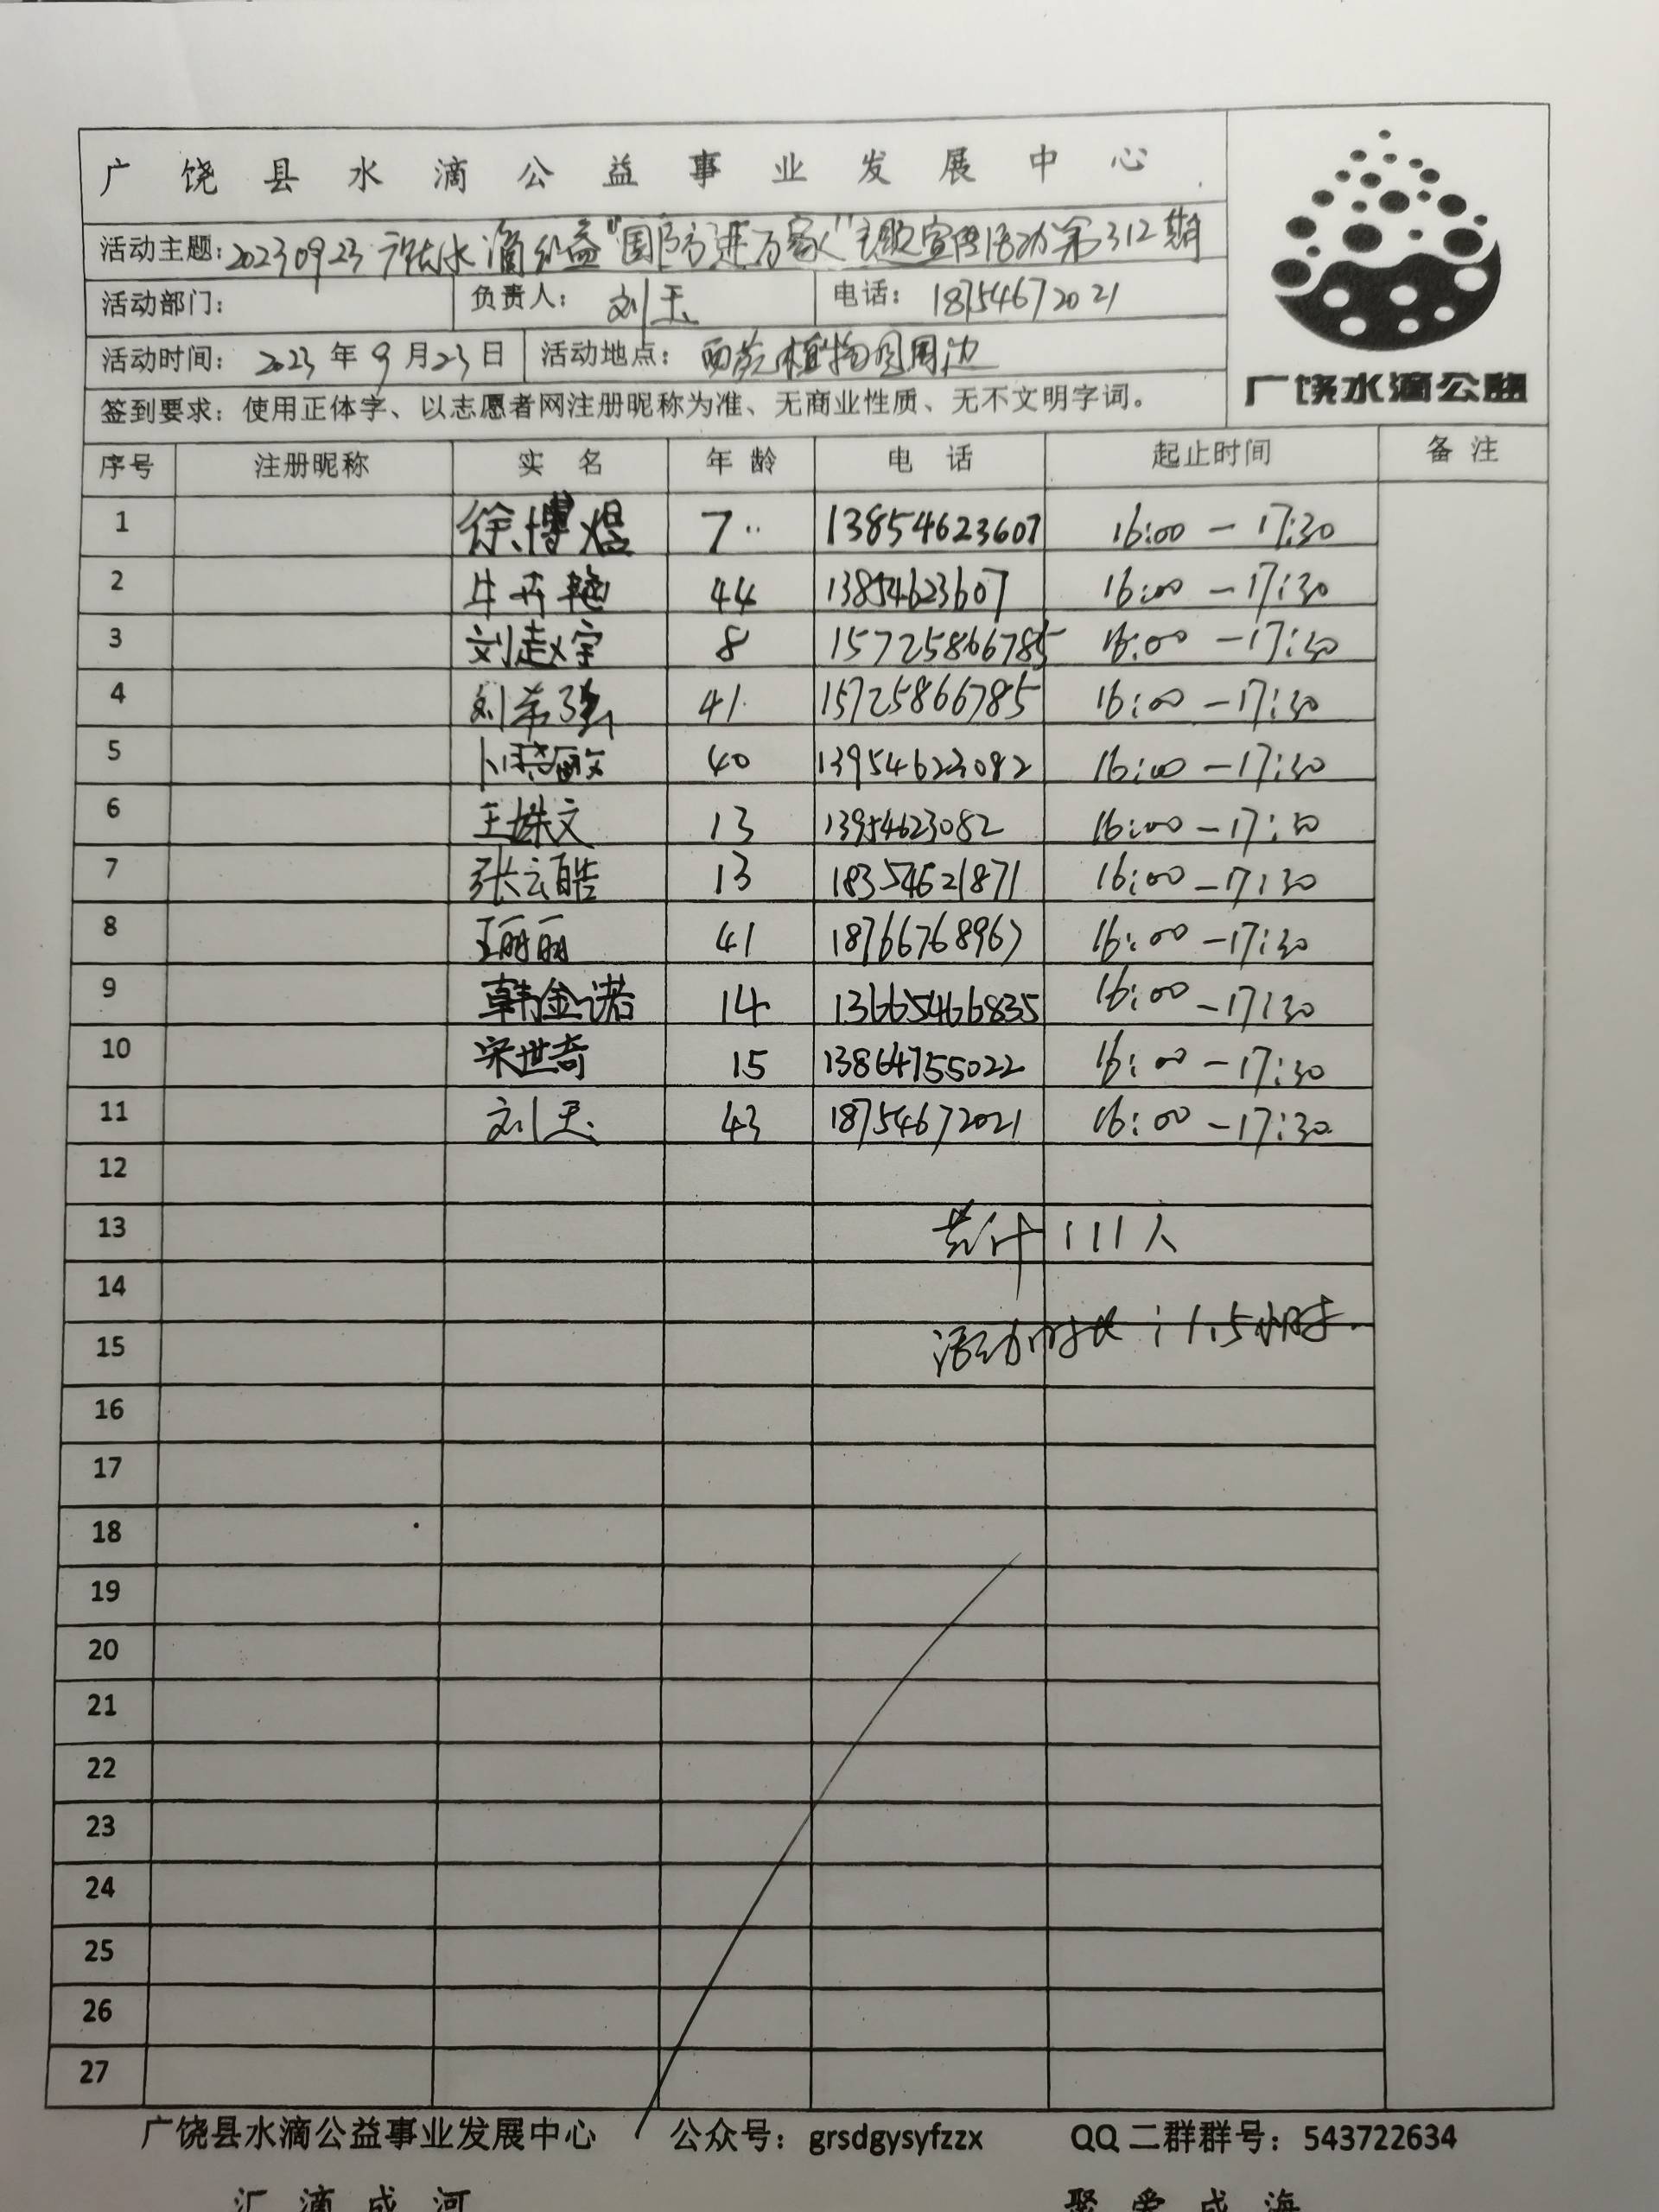 广饶县水滴公益事业发展中心
活动主题:20230923广饶水滴公益"国防进万家"主题宣传活动第312期
广饶水滴公益
活动部门: 负责人: 刘玉 电话: 18754672021
活动时间: 2023年9月23日 活动地点: 植物园周边
签到要求:使用正体字、以志愿者网注册昵称为准、无商业性质、无不文明字词。
序号 注册昵称 实名 年龄 电话 起止时间 备注
1 徐博煜 7 13854623607 16:00-17:30
2 44 13854623607 16:00-17:30
3 刘赵宇 8 15725866785 16:00-17:30
4 刘希强 41 15725866785 16:00-17:30
5 40 13954623082 16:00-17:30
6 王姝文 13 13954623082 16:00-17:30
7 张云皓 13 18354621871 16:00-17:30
8 王丽丽 41 18766768967 16:00-17:30
9 韩金诺 14 13665466835 16:00-17:30
10 宋世奇 15 13864755022 16:00-17:30
11 刘玉 43 18754672021 16:00-17:30
12
13 共计111人
14
15 活动时长:1.5小时.
16
17
18
19
20
21
22
23
24
25
26
27
广饶县水滴公益事业发展中心 公众号:grsdgysyfzzx QQ二群群号:543722634
汇滴成河 聚爱成海